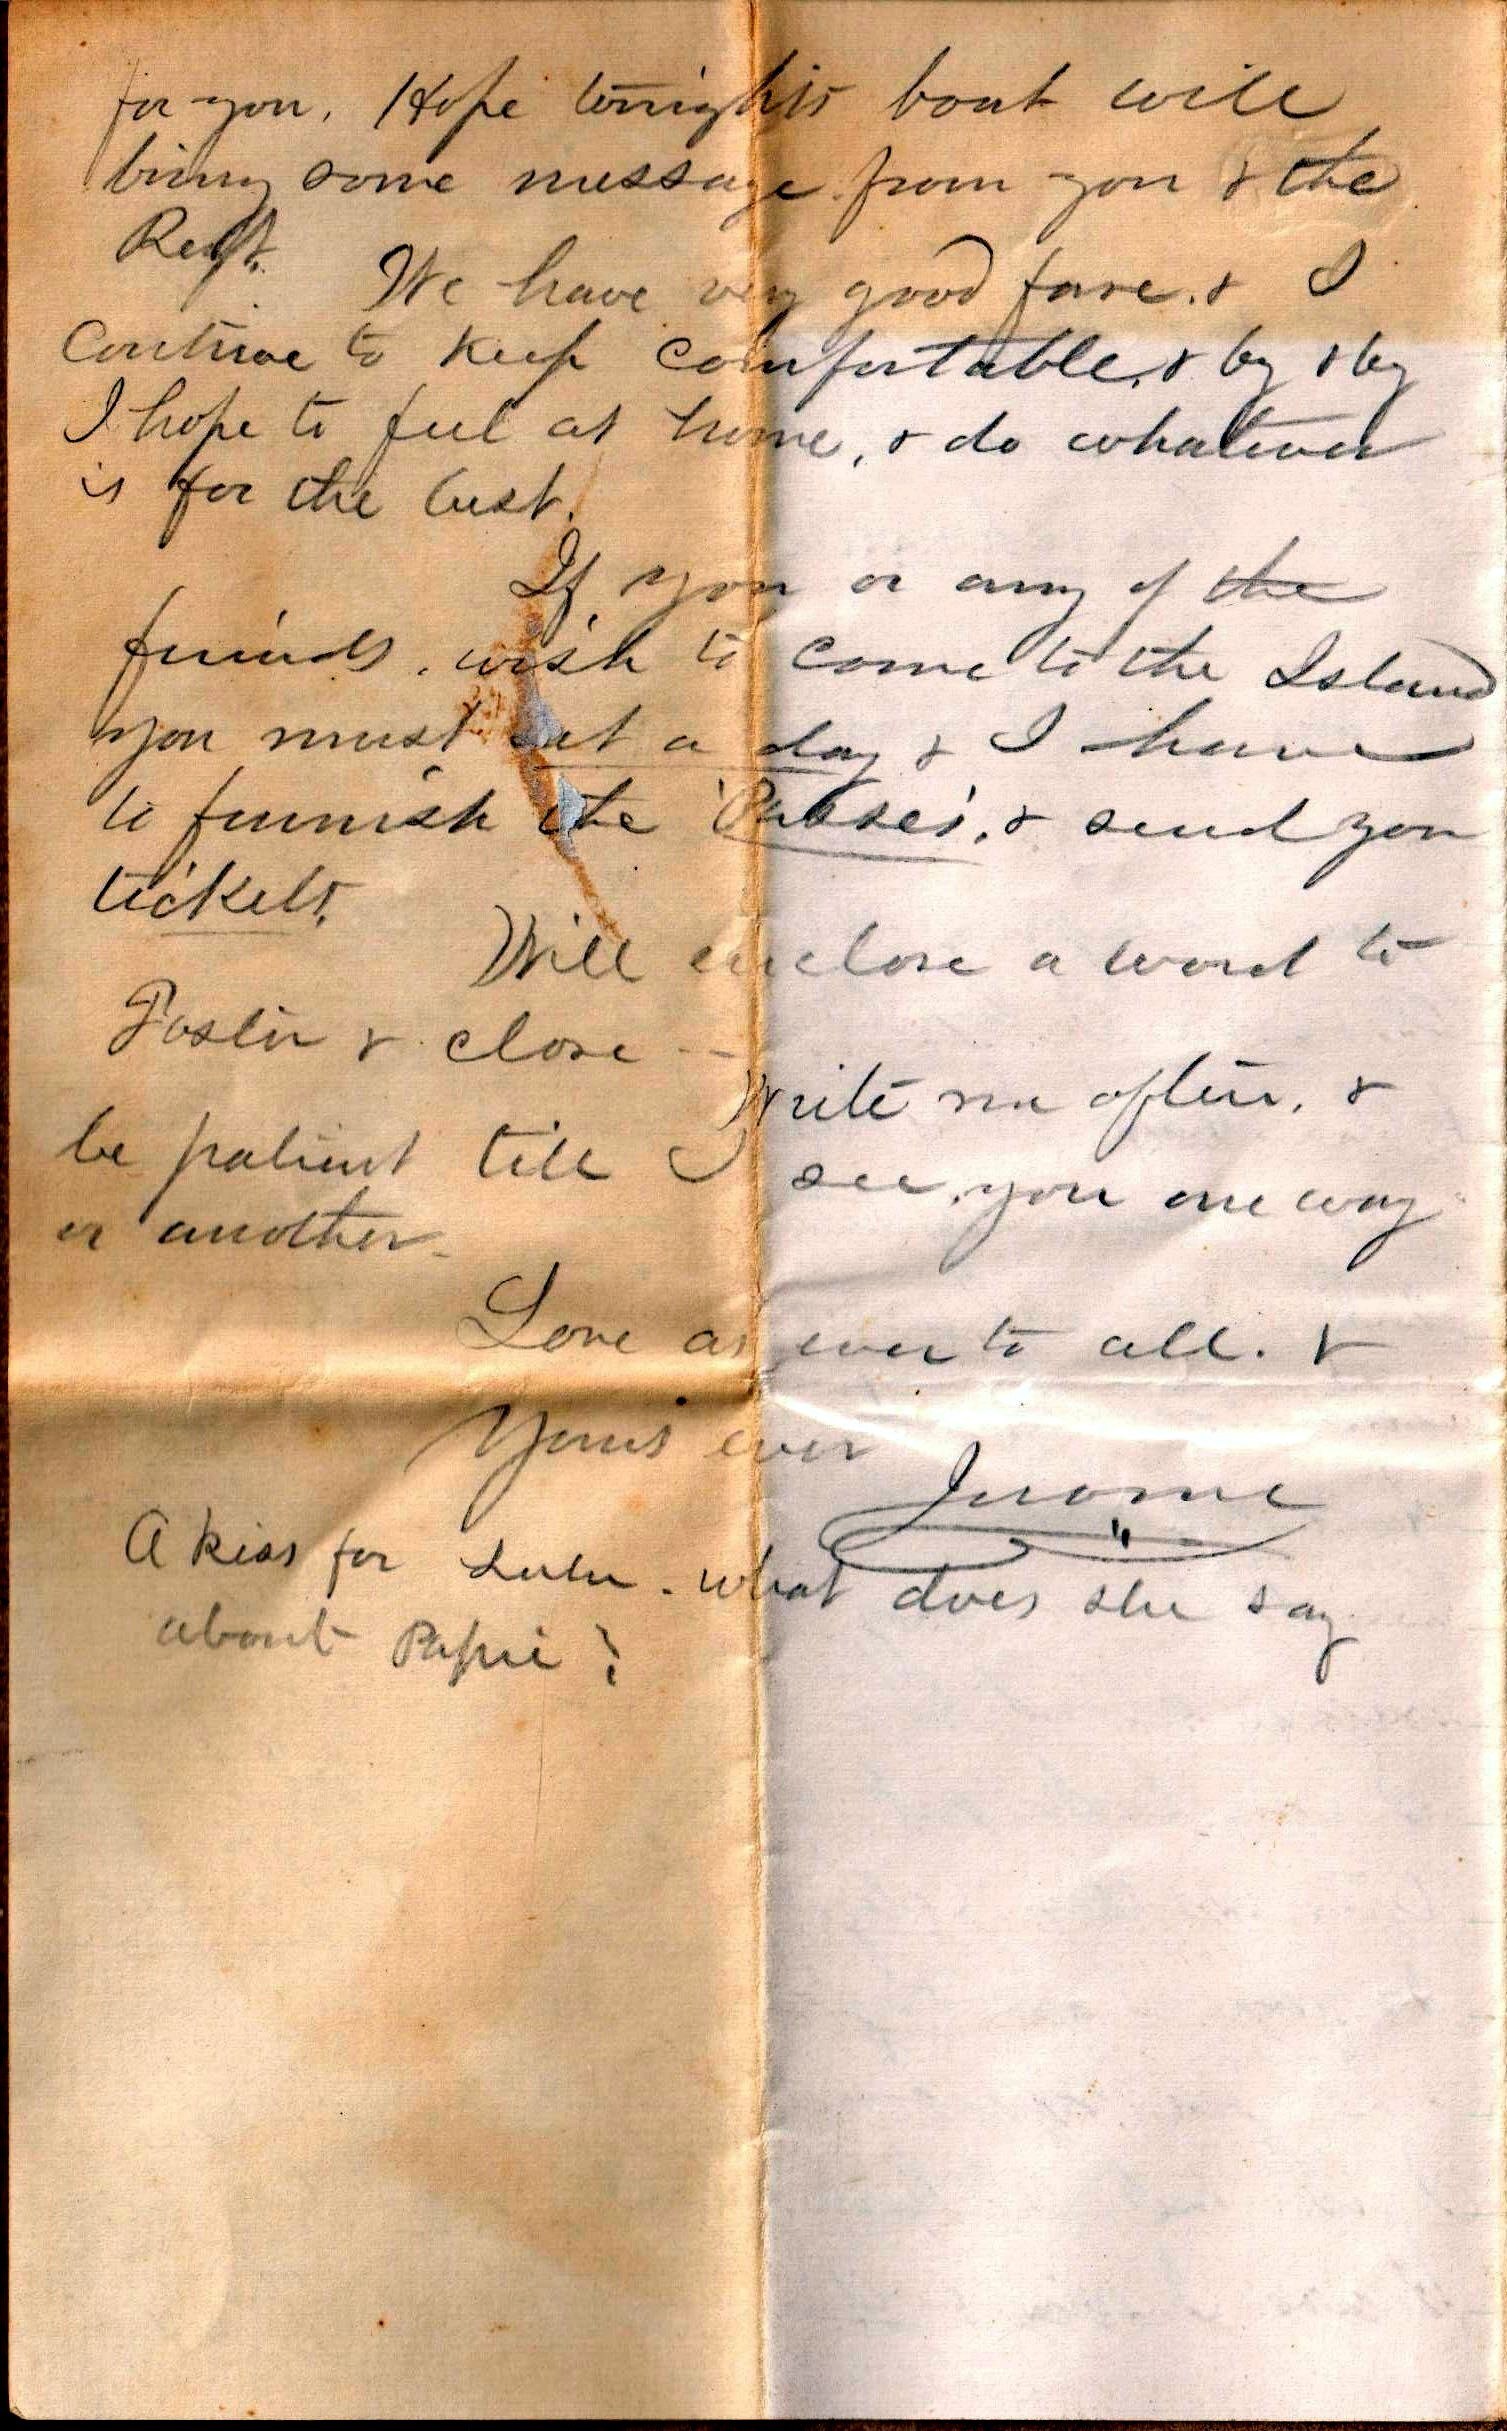 for you. Hope tonights boat will
bring some message from you & the
Rest.
We have very good fare. & I
Continue to keep comfortable, & by & by
I hope to feel at home, & do whatever
is for the best.
If you or any of the
friends, wish to come to the Island
you must set a day & I have
to furnish the 'Passes', & send you
tickets.
Will enclose a word to
Foster & close --
Write me often, &
be patient till I see you one way
or another -
Love as ever to all. &
Yours ever
Jerome
A kiss for Lulu - what does she say
about Papie?